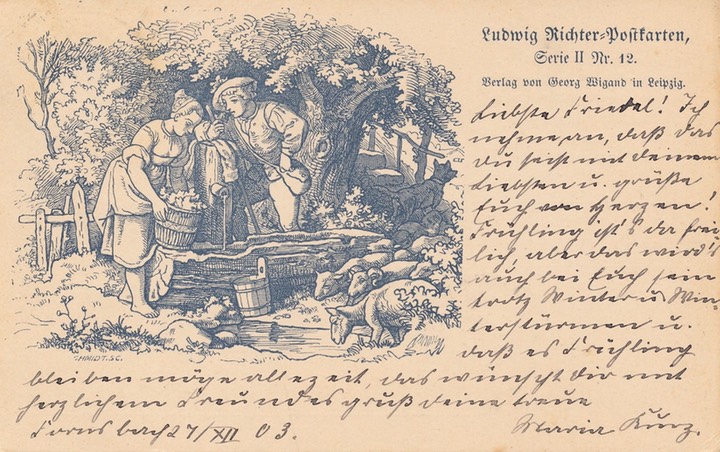 Ludwig Richter-Postkarten,
Serie II Nr. 12.
Verlag von Georg Wigand in Leipzig.
Liebste Friedel! Ich
nehme an, daß das
Du seist mit deinem
Liebsten u. grüße
Euch von Herzen!
Frühling ist's da frei
lich, aber das wird's
auch bei Euch sein
trotz Winter u. Win-
terstürmen u.
daß es Frühling
bleiben möge allezeit, das wünscht dir mit
herzlichem Freundesgruß deine treue
27/XII 03. Maria Kurz.